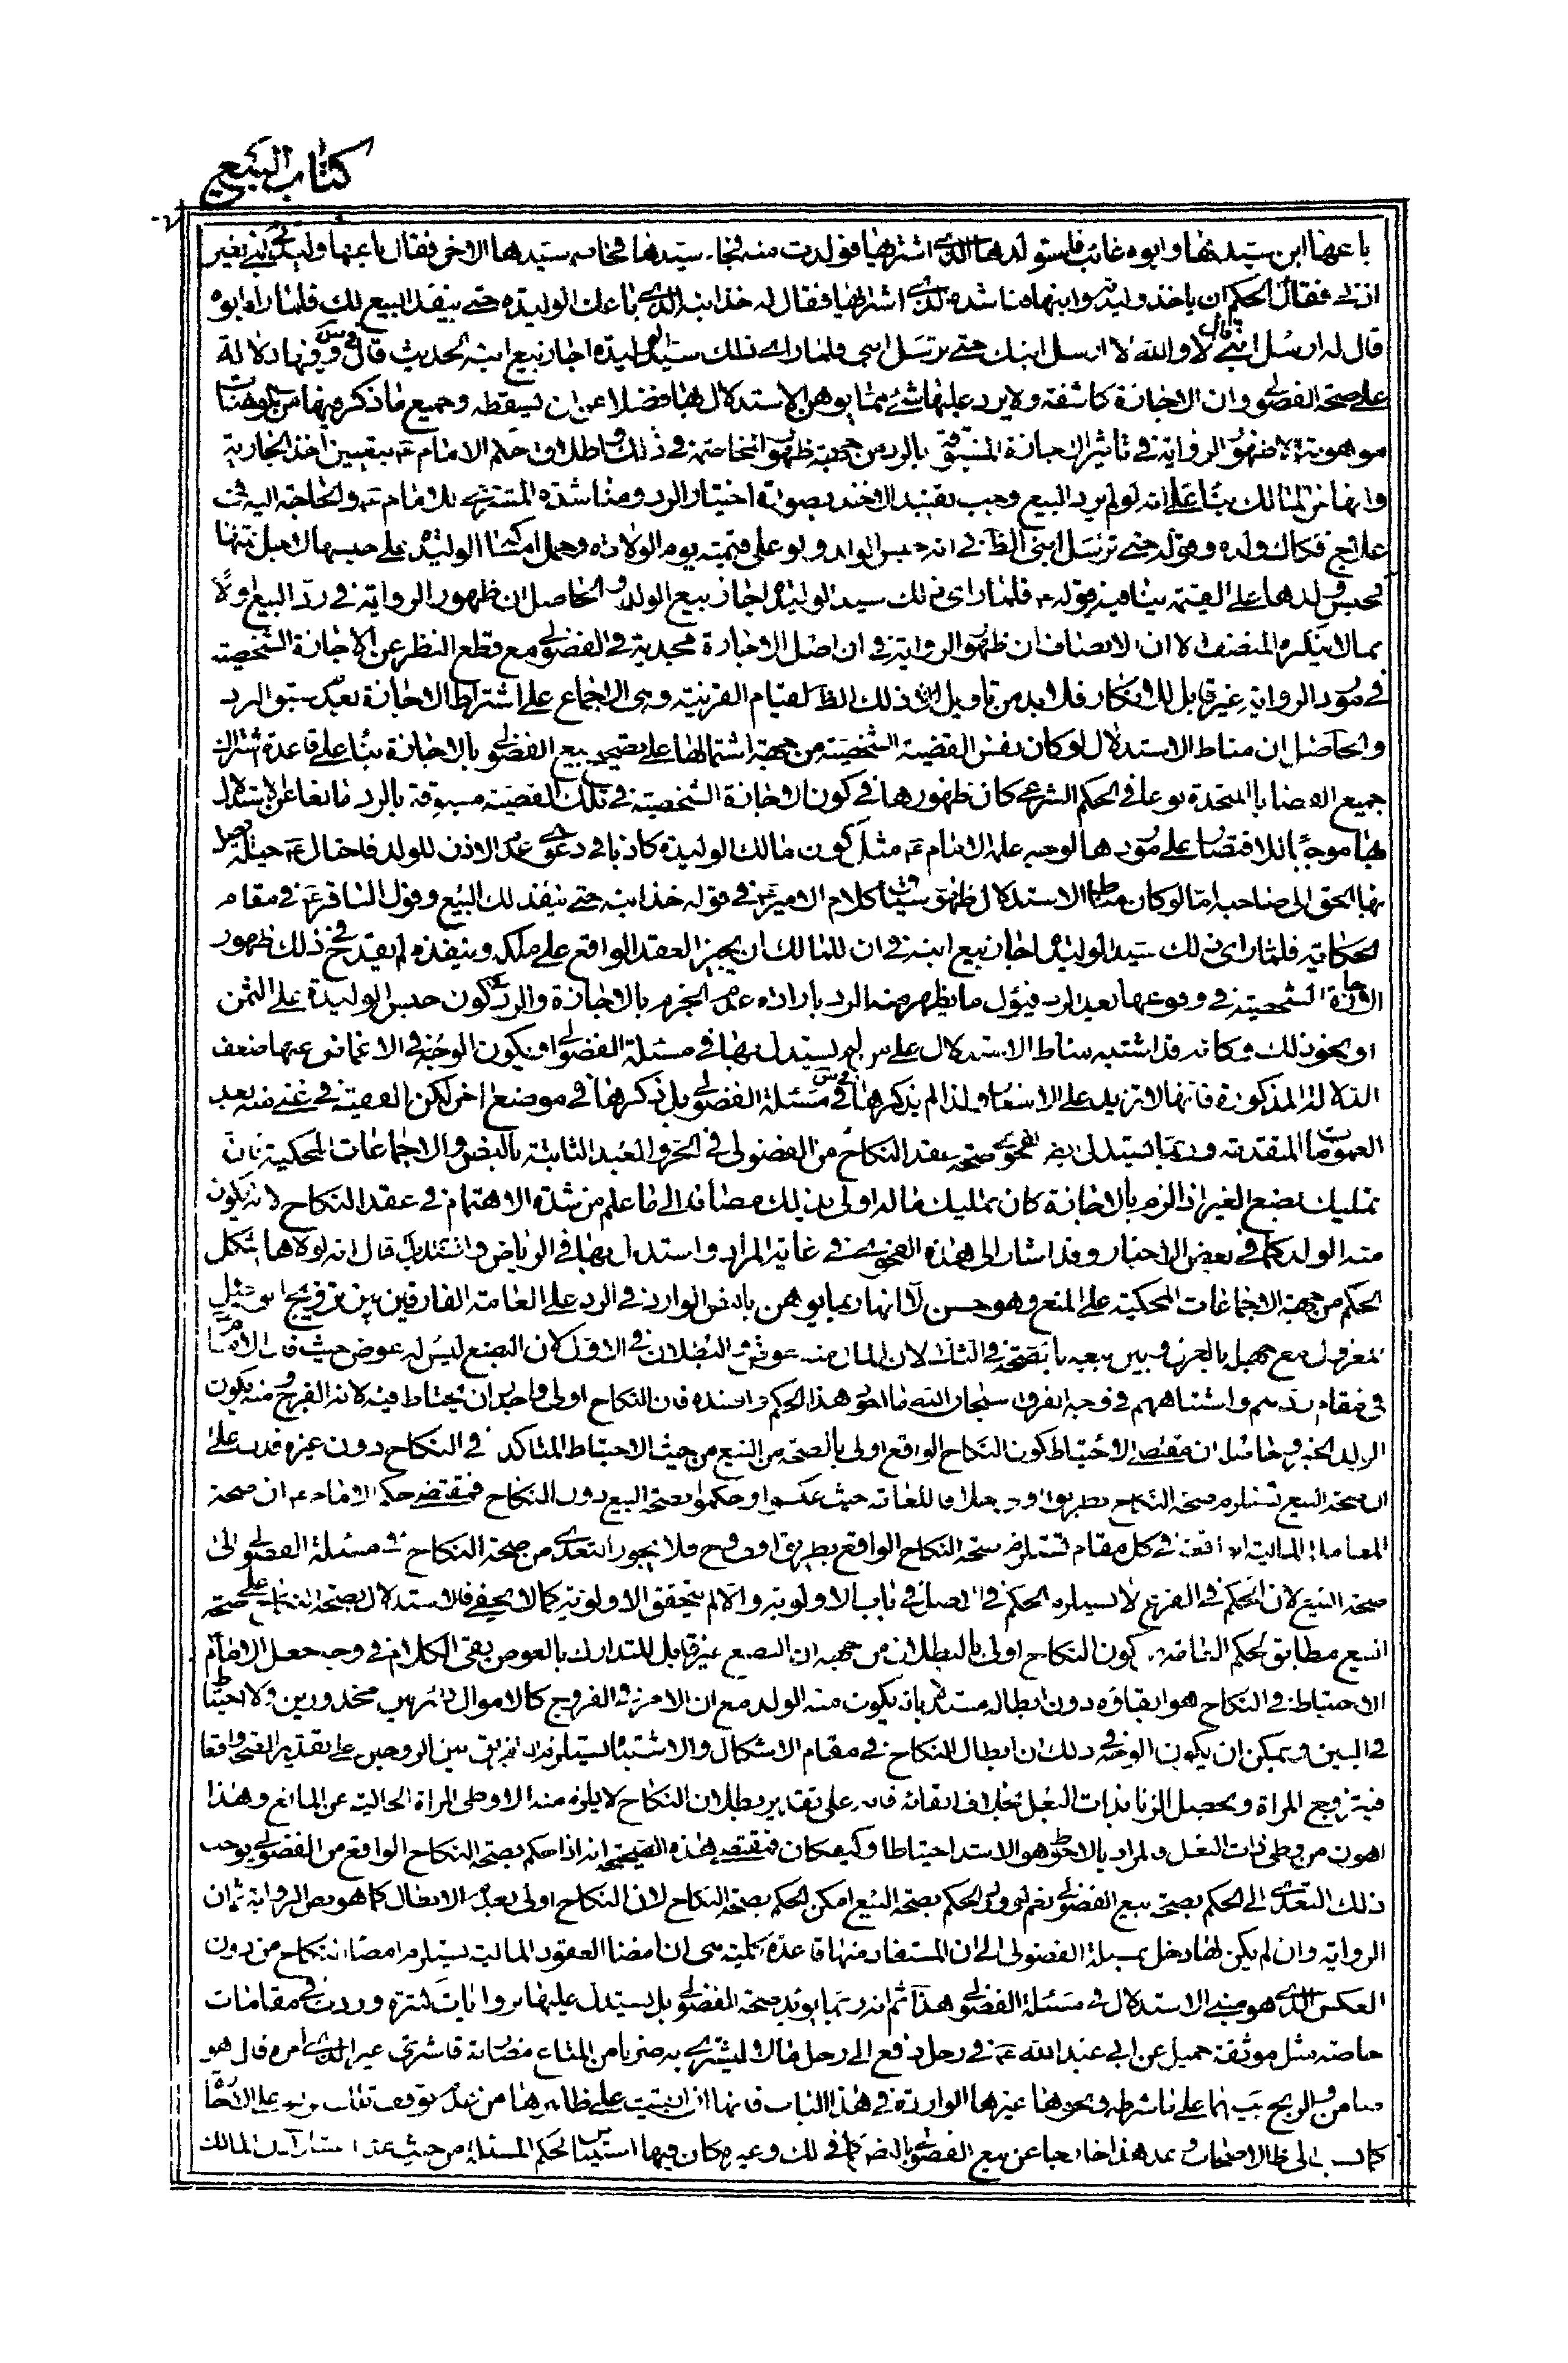 كتاب البيع
باعها ابن سيدها وابوه غائب فاستولدها الذى اشتراها فولدت منه فجاء سيدها فخاصم سيدها الاخر فقال باعها وليدتى ابنى بغير
اذنى فقال الحكم ان ياخذ وليدته وابنها فناشده الذى اشتراها فقال له خذ ابنه الذى باعك الوليدة حتى ينفذ البيع لك فلما راه ابوه
قال له ارسل ابنى قال لا والله لا ارسل ابنك حتى ترسل ابنى فلما راى ذلك سيد الوليدة اجاز بيع ابنه الحديث قال فى س وفيها دلالة
على صحة الفضولى وان الاجازة كاشفة ولا يرد عليها شئ مما يوهن الاستدلال بها فضلا عن ان يسقطه وجميع ما ذكر فيها من الموهنات
موهونة الا ظهور الرواية فى تاثير الاجازة المسبوقة بالرد من جهة ظهور المخاصمة فى ذلك واطلاق حكم الامام ع بتعيين اخذ الجارية
وابنها من المالك بناء على انه لو لم يرد البيع وجب تقييد الاخذ بصورة اختيار الرد ومناشدة المشترى للامام ع والحاجة اليه فى
علاج فكاك ولده وقوله حتى ترسل ابنى الظاهر فى انه حبس الولد ولو على قيمته يوم الولادة وحمل امساكه الوليدة على حبسها لاجل ثمنها
كحبس ولدها على القيمة ينافيه قوله ع فلما راى ذلك سيد الوليدة اجاز بيع الولد والحاصل ان ظهور الرواية فى رد البيع اولا
مما لا ينكره المنصف الا ان الانصاف ان ظهور الرواية فى ان اصل الاجازة مجدية فى الفضولى مع قطع النظر عن الاجازة الشخصية
فى مورد الرواية غير قابل للانكار فلا بد من تاويل ذلك الظاهر لقيام القرينة وهى الاجماع على اشتراط الاجازة بعدم سبق الرد
والحاصل ان مناط الاستدلال لو كان نفس القضية الشخصية من جهة اشتمالها على تصحيح بيع الفضولى بالاجازة بناء على قاعدة اشتراك
جميع القضايا المتحدة نوعا فى الحكم الشرعى كان ظهورها فى كون الاجازة الشخصية فى تلك القضية مسبوقة بالرد مانعا عن الاستدلال
بها موجبا للاقتصار على موردها لوجه علمه الامام ع مثل كون مالك الوليدة كاذبا فى دعوى عدم الاذن للولد فاحتال ع حيلة يصل
بها الحق الى صاحبه اما لو كان مناط الاستدلال ظهور سياق كلام الامير ع فى قوله خذ ابنه حتى ينفذ لك البيع وقول الباقر ع فى مقام
الحكاية فلما راى ذلك سيد الوليدة اجاز بيع ابنه فى ان للمالك ان يجيز العقد الواقع على ملكه وينفذه لم يقدح فى ذلك ظهور
الاجازة الشخصية فى وقوعها بعد الرد فيؤل ما يظهر منه الرد بارادة عدم الجزم بالاجازة والرد او كون حبس الوليدة على الثمن
او نحو ذلك وكانه قد اشتبه مناط الاستدلال على من لم يستدل بها فى مسئلة الفضولى او يكون الوجه فى الاغماض عنها ضعف
الدلالة المذكورة فانها لا تزيد على الاشعار ولذا لم يذكرها فى س فى مسئلة الفضولى بل ذكرها فى موضع اخر لكن الفقيه فى غنى منه بعد
العمومات المتقدمة وربما يستدل ايضا بفحوى صحة عقد النكاح من الفضولى فى الحر والعبد الثابتة بالنص والاجماعات المحكية فان
تمليك بضع الغير اذا لزم بالاجازة كان تمليك ماله اولى بذلك مضافا الى ما علم من شدة الاهتمام فى عقد النكاح لانه يكون
منه الولد كما فى بعض الاخبار وقد اشار الى هذه الفحوى فى غاية المراد واستدل بها فى الرياض واستدل قال انه لولاها اشكل
الحكم من جهة الاجماعات المحكية على المنع وهو حسن الا انها ربما يوهن بالنص الوارد فى الرد على العامة الفارقين بين تزويج الوكيل
المعزول مع جهله بالعزل وبين بيعه بالصحة فى الثانى لان المال منه عوض والبطلان فى الاول لان البضع ليس له عوض حيث قال الامام ع
فى مقام ردهم واشتباههم فى وجه الفرق سبحان الله ما اجور هذا الحكم وافسده فان النكاح اولى واجدر ان يحتاط فيه لانه الفرج ومنه يكون
الولد الخبر وحاصله ان مقتضى الاحتياط كون النكاح الواقع اولى بالصحة من البيع من حيث الاحتياط المتاكد فى النكاح دون غيره فدل على
ان صحة البيع تستلزم صحة النكاح بطريق اولى خلافا للعامة حيث عكسوا وحكموا بصحة البيع دون النكاح فمقتضى حكم الامام ع ان صحة
المعاملة المالية الواقعة فى كل مقام تستلزم صحة النكاح الواقع بطريق اولى وح فلا يجوز التعدى من صحة النكاح فى مسئلة الفضولى الى
صحة البيع لان الحكم فى الفرع لا يستلزم الحكم فى الاصل فى باب الاولوية والا لم يتحقق الاولوية كما لا يخفى فالاستدلال بصحة النكاح على صحة
البيع مطابق لحكم العامة من كون النكاح اولى بالبطلان من جهة ان البضع غير قابل للتدارك بالعوض بقى الكلام فى وجه جعل الامام
الاحتياط فى النكاح هو ابقاؤه دون ابطاله مستدلا بانه يكون منه الولد مع ان الامر فى الفروج كالاموال دائر بين محذورين ولا احتياط
فى البين ويمكن ان يكون الوجه فى ذلك ان ابطال النكاح فى مقام الاشكال والاشتباه يستلزم التفريق بين الزوجين على تقدير الصحة واقعا
فيتزوج المراة ويحصل الزنا بذات البعل بخلاف ابقائه فانه على تقدير بطلان النكاح لا يلزم منه الا وطى المراة الخالية عن المانع وهذا
اهون من وطى ذات البعل والمراد بالاحوط هو الاشد احتياطا وكيف كان فمقتضى هذه الصحيحة انه اذا حكم بصحة النكاح الواقع من الفضولى يوجب
ذلك التعدى الى الحكم بصحة بيع الفضولى نعم لو ورد الحكم بصحة البيع امكن الحكم بصحة النكاح لان النكاح اولى بعدم الابطال كما هو نص الرواية ثم ان
الرواية وان لم يكن لها دخل بمسئلة الفضولى الا ان المستفاد منها قاعدة كلية هى ان امضاء العقود المالية يستلزم امضاء النكاح من دون
العكس الذى هو مبنى الاستدلال فى مسئلة الفضولى هذا ثم انه ربما يؤيد صحة الفضولى بل يستدل عليها بروايات كثيرة وردت فى مقامات
خاصة مثل موثقة جميل عن ابى عبد الله ع فى رجل دفع الى رجل مالا ليشترى به ضربا من المتاع مضاربة فاشترى غير الذى امره قال هو
ضامن والربح بينهما على ما شرطه ونحوها غيرها الواردة فى هذا الباب فانها ان ابقيت على ظاهرها من عدم توقف ملك الربح على الاجازة
كما نسب الى ظاهر الاصحاب وعد هذا خارجا عن بيع الفضولى بالنص كما فى لك وغيره كان فيها استيناس لحكم المسئلة من حيث عدم اعتبار اذن المالك